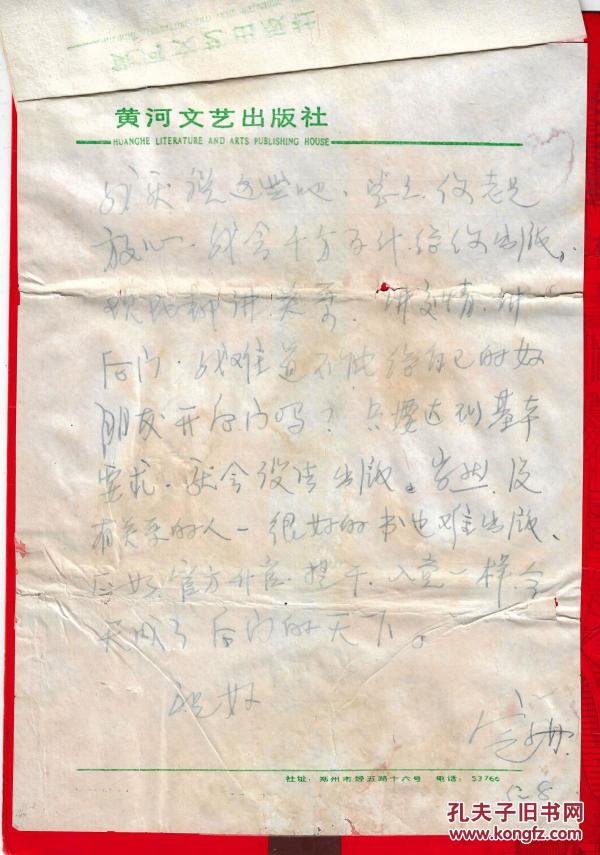 黄河文艺出版社
黄河文艺出版社
HUANGHE LITERATURE AND ARTS PUBLISHING HOUSE
就说这些吧。 你老兄
放心，我会千方百计给你出版。
现在都讲关系，讲交情，讲
后门，我难道不能给自己的好
朋友开后门吗？只要达到基本
要求，就会设法出版。当然，没
有关系的人，很好的书也难出版，
正如官方升官、提干、入党一样，今
天成了后门的天下。
祝好
社址：郑州市经五路十六号 电话：53766
12.8
孔夫子旧书网
www.kongfz.com